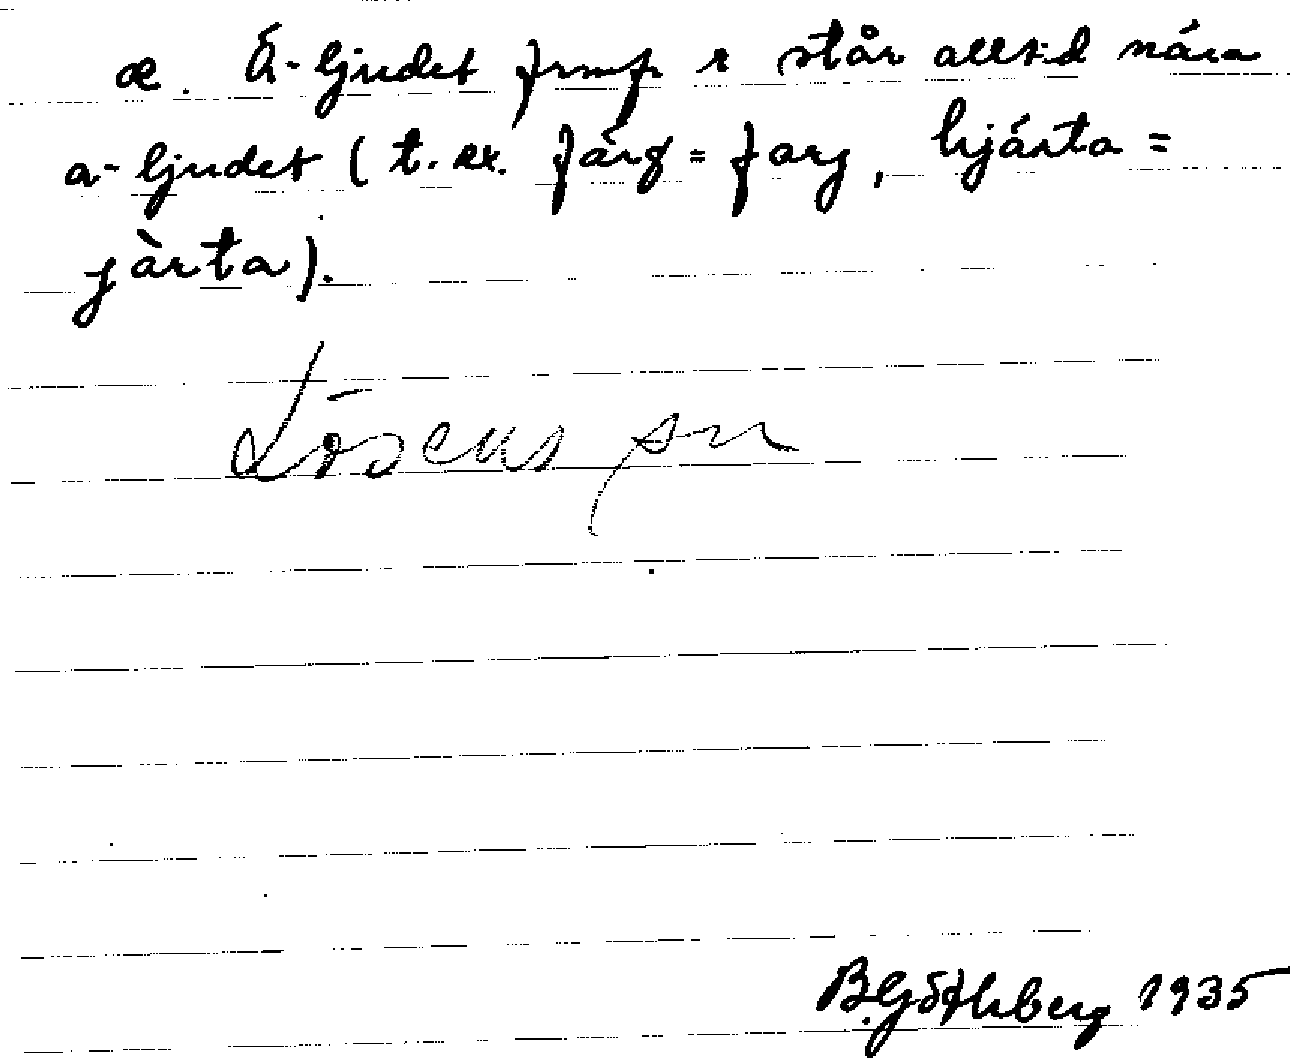 æ. Ä-ljudet framför r står alltid nära
a-ljudet (t. ex. färg = farj, hjärta =
järta).
Löscus sn
B. Göthberg 1935